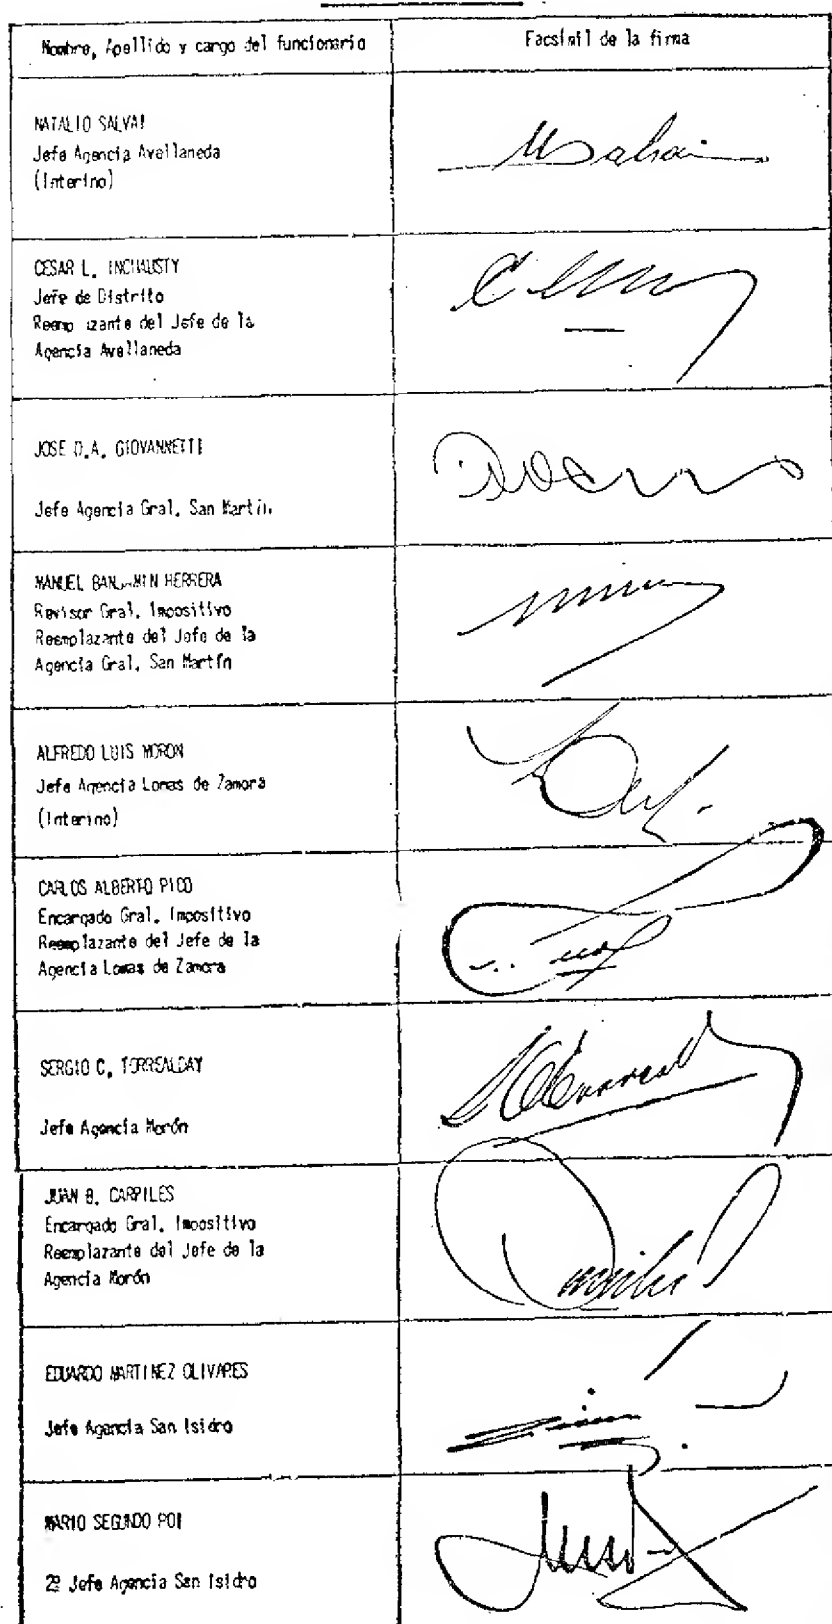 Nombre, Apellido y cargo del funcionario
Facsímil de la firma
NATALIO SALVAI
Jefe Agencia Avellaneda
(Interino)
CESAR L. INCHAUSTY
Jefe de Distrito
Reemp izante del Jefe de la
Agencia Avellaneda
JOSE D.A. GIOVANNETTI
Jefe Agencia Gral. San Martín
MANUEL BANJAMIN HERRERA
Revisor Gral. Impositivo
Reemplazante del Jefe de la
Agencia Gral. San Martín
ALFREDO LUIS MORON
Jefe Agencia Lomas de Zamora
(Interino)
CARLOS ALBERTO PICO
Encargado Gral. Impositivo
Reemplazante del Jefe de la
Agencia Lomas de Zamora
SERGIO C. TORREALDAY
Jefe Agencia Morón
JUAN B. CARPILES
Encargado Gral. Impositivo
Reemplazante del Jefe de la
Agencia Morón
EDUARDO MARTINEZ OLIVARES
Jefe Agencia San Isidro
MARIO SEGUNDO POI
2º Jefe Agencia San Isidro